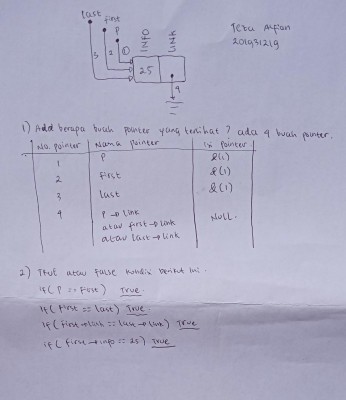 last
first
P
INFO
LINK
Teta Alfian
201931219
3
2
①
25
4
1) Ada berapa buah pointer yang terlihat ? ada 4 buah pointer.
No. pointer Nama pointer Isi pointer
1 P &(1)
2 first &(1)
3 last &(1)
4 P → link NULL.
atau first → link
atau last → link
2) True atau False kondisi berikut ini.
if ( P == First) True.
if ( First == last) True
if ( first → link == last → link) True
if ( first → info == 25) True